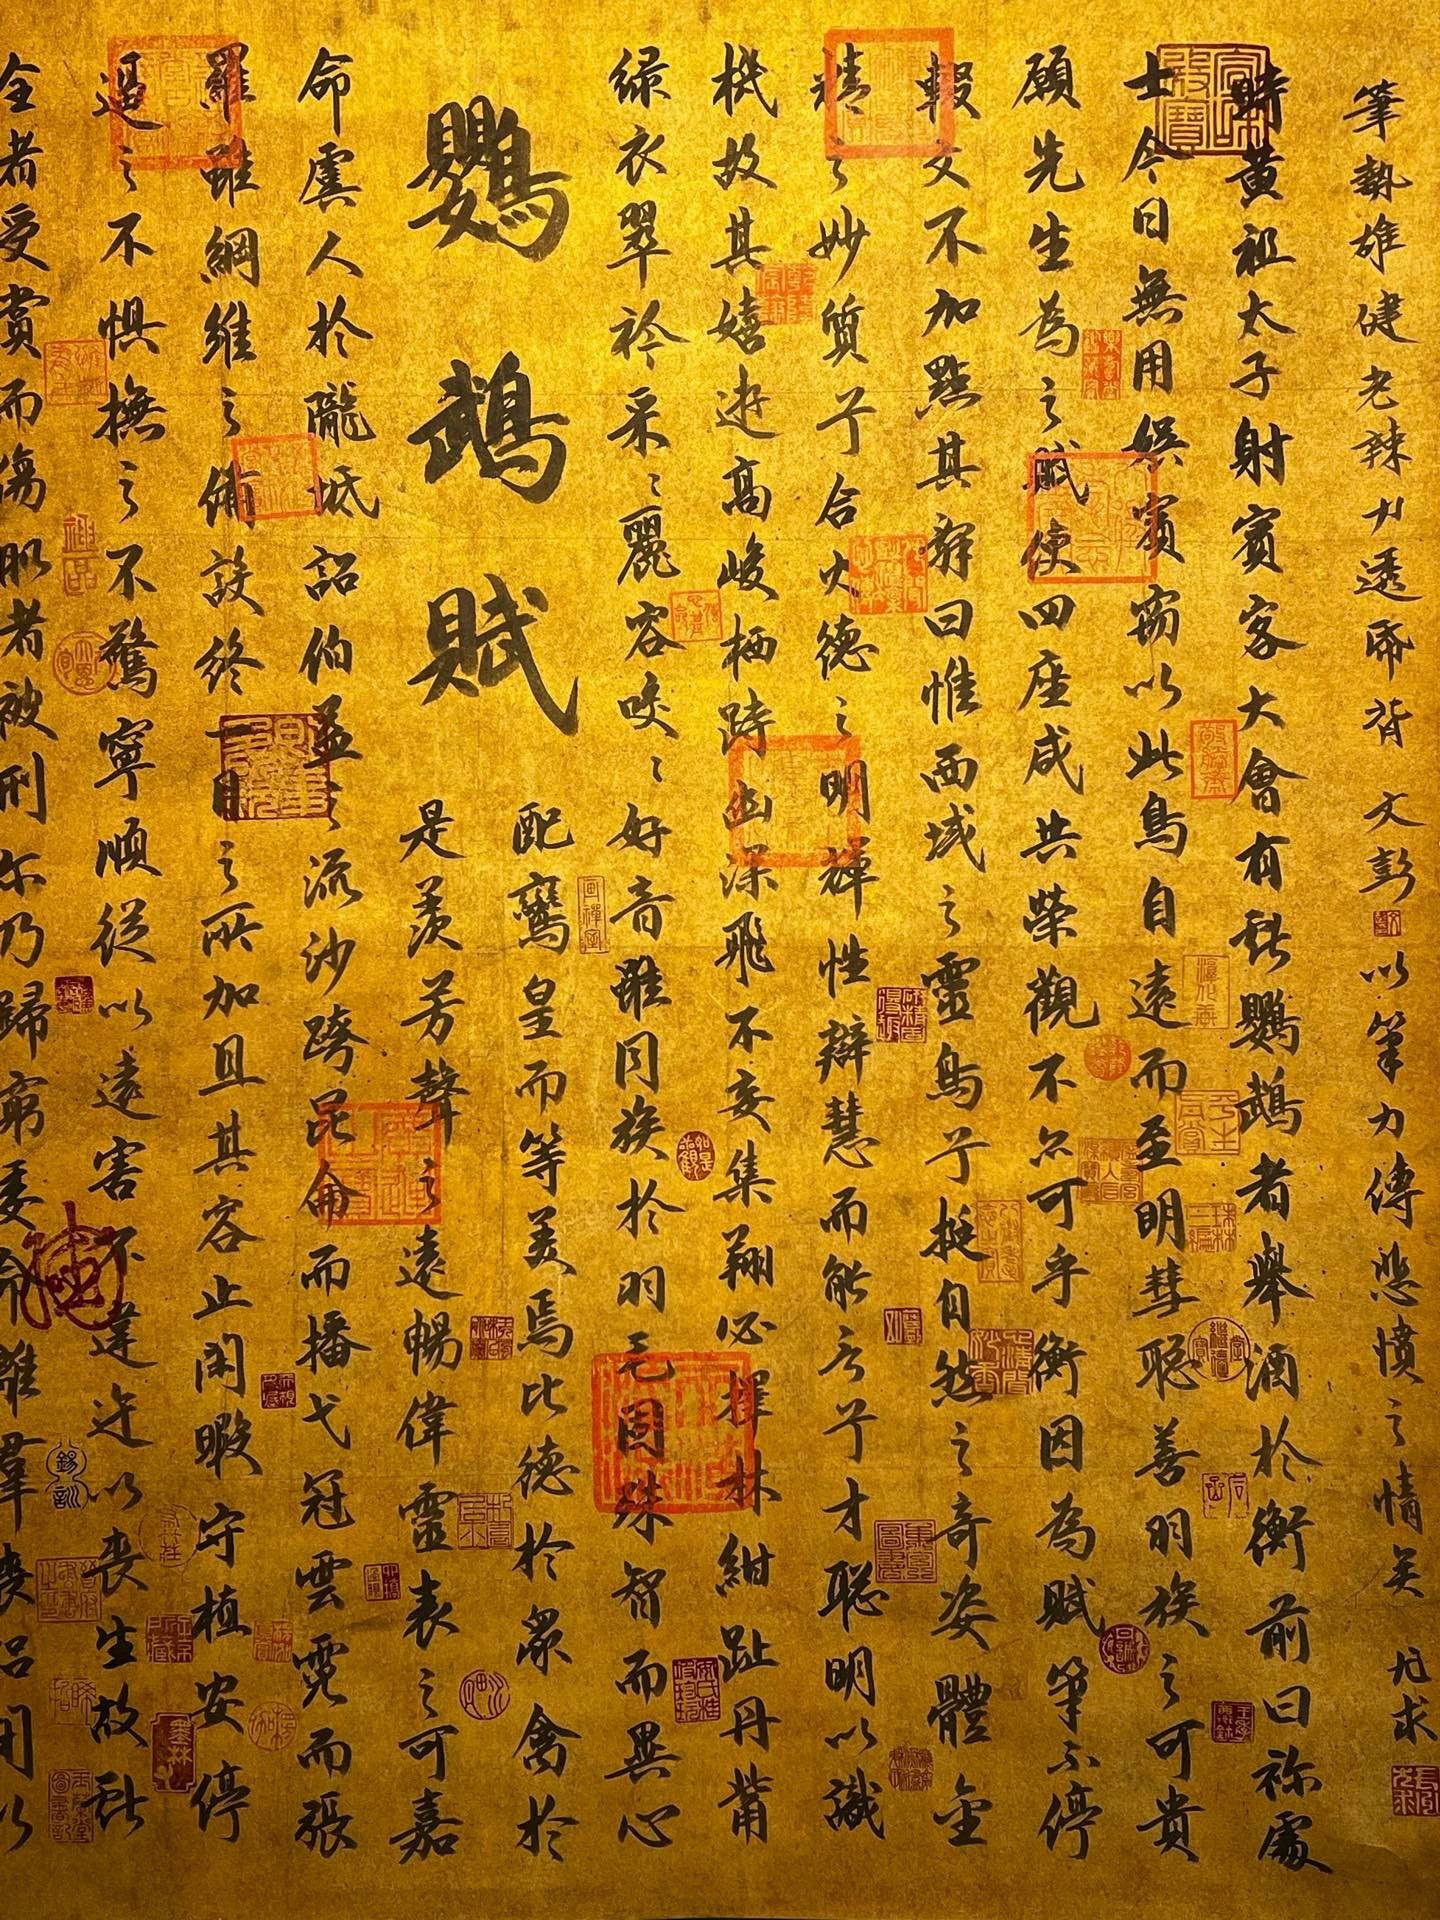 筆勢雄健老辣力透帋背 文彭 以筆力傳悲憤之情矣 尤求
時黃祖太子射賓客大會有獻鸚鵡者舉酒於衡前曰祢處
士今日無用娛賓窃以此鳥自遠而至明彗聰善羽族之可貴
願先生為之賦使四座咸共榮觀不亦可乎衡因為賦筆不停
輟文不加點其辭曰惟西域之靈鳥兮挺自然之奇姿體金
精之妙質兮合火德之明輝性辯慧而能言兮才聰明以識
機故其嬉遊高峻栖跱幽深飛不妄集翔必擇林紺趾丹觜
綠衣翠衿采〻麗容咬〻好音雖同族於羽毛固殊智而異心
配鸞皇而等美焉比德於眾禽於
鸚鵡賦
是羨芳聲之遠暢偉靈表之可嘉
命虞人於隴坻詔伯益於流沙跨昆侖而播弋冠雲霓而張
羅雖綱維之備設終一目之所加且其容止閑暇守植安停
逼之不懼撫之不驚寧順從以遠害不違迕以喪生故獻
全者受賞而傷肌者被刑尔乃歸窮委命離羣喪侶閇以